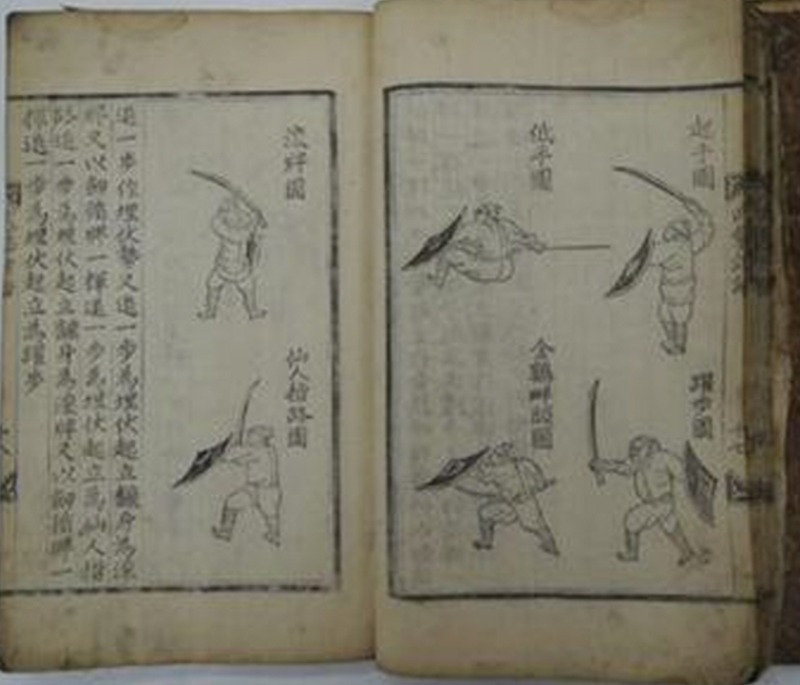 起手圖
躍步圖
低平圖
金鷄畔頭圖
滾牌圖
仙人指路圖
進一步作埋伏勢又進一步為埋伏起立飜身為滾
牌又以劒循牌一揮進一步為埋伏起立為仙人指
路進一步為埋伏起立飜身為滾牌又以劒循牌一
揮退一步為埋伏起立為躍步